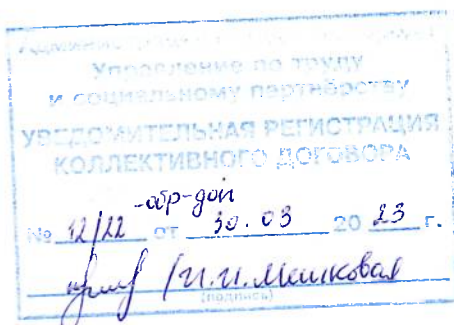 Управление по труду
и социальному партнёрству
УВЕДОМИТЕЛЬНАЯ РЕГИСТРАЦИЯ
КОЛЛЕКТИВНОГО ДОГОВОРА
-обр-доп
№ 12/22 от 30.03 2023 г.
(И.И. Мешковая
(подпись)